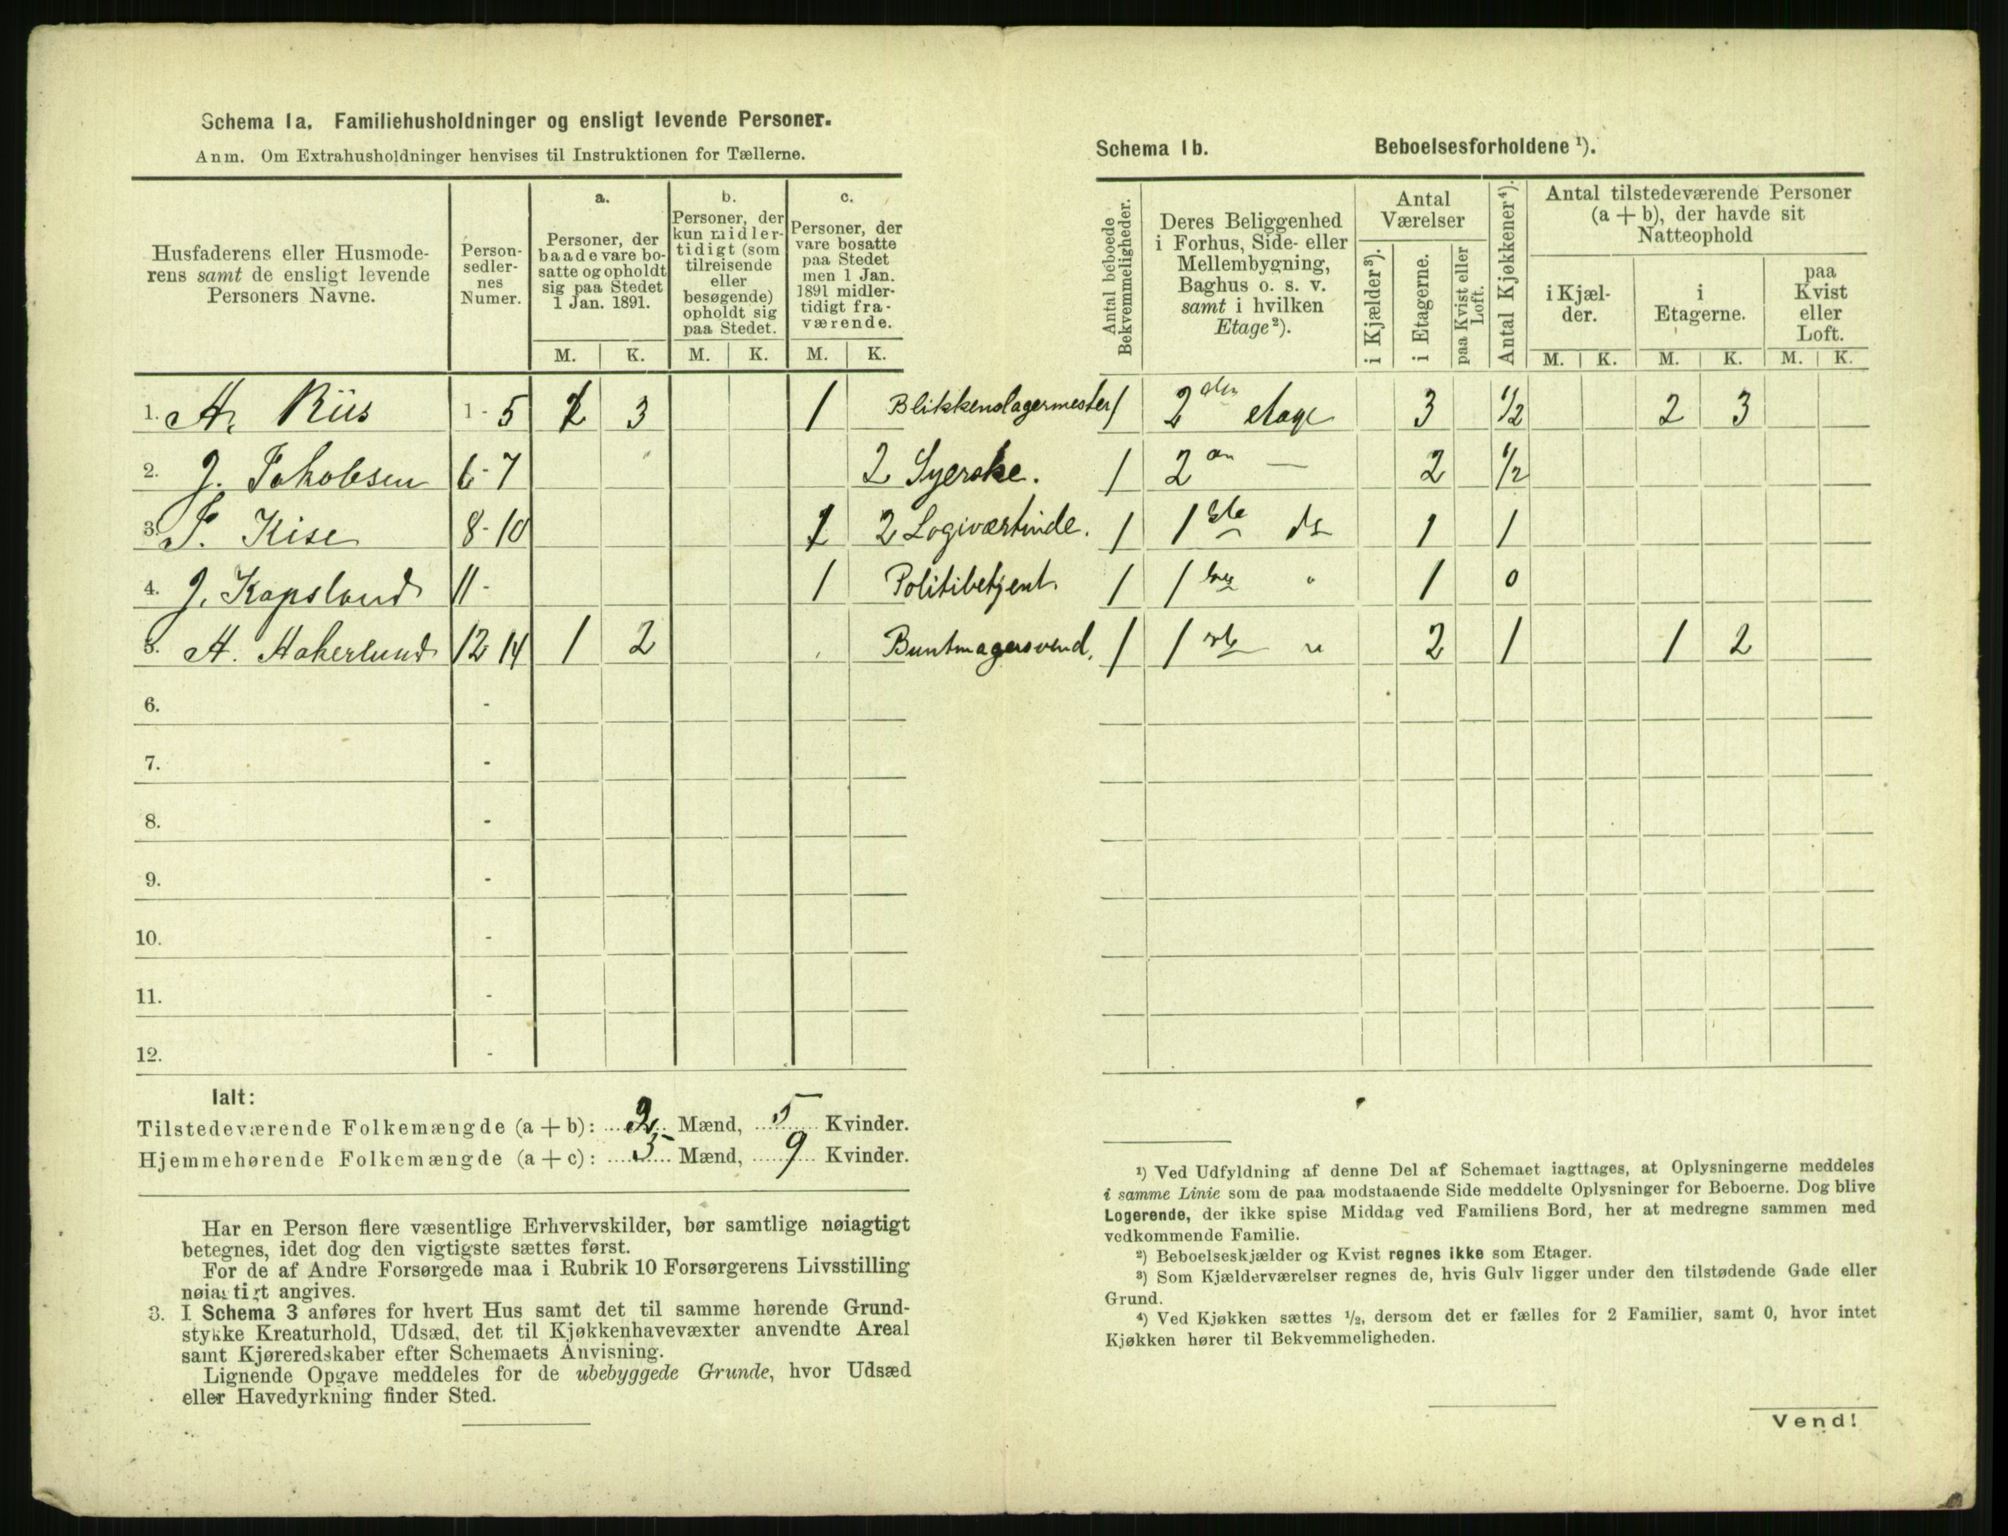 Schema 1a. Familiehusholdninger og ensligt levende Personer.
Anm. Om Extrahusholdninger henvises til Instruktionen for Tællerne.
Husfaderens eller Husmoderens samt de ensligt levende Personers Navne.
Personsedlernes Numer.
a.
Personer, der baade vare bosatte og opholdt sig paa Stedet 1 Jan. 1891.
b.
Personer, der kun midlertidigt (som tilreisende eller besøgende) opholdt sig paa Stedet.
c.
Personer, der vare bosatte paa Stedet men 1 Jan. 1891 midlertidigt fraværende.
M. K. M. K. M. K.
1. A. Riis 1-5 2 3 1 Blikkenslagermester
2. J. Jakobsen 6-7 2 Syerske.
3. P. Kise 8-10 1 2 Logiværtinde.
4. J. Kapslund 11- 1 Politibetjent
5. A. Aakerlund 12-14 1 2 Buntmagersvend.
6. -
7. -
8. -
9. -
10. -
11. -
12. -
Ialt:
Tilstedeværende Folkemængde (a + b): 2 Mænd, 5 Kvinder.
Hjemmehørende Folkemængde (a + c): 5 Mænd, 9 Kvinder.
Har en Person flere væsentlige Erhvervskilder, bør samtlige nøiagtigt
betegnes, idet dog den vigtigste sættes først.
For de af Andre Forsørgede maa i Rubrik 10 Forsørgerens Livsstilling
nøiagtigt angives.
3. I Schema 3 anføres for hvert Hus samt det til samme hørende Grund-
stykke Kreaturhold, Udsæd, det til Kjøkkenhavevæxter anvendte Areal
samt Kjøreredskaber efter Schemaets Anvisning.
Lignende Opgave meddeles for de ubebyggede Grunde, hvor Udsæd
eller Havedyrkning finder Sted.
Schema 1b. Beboelsesforholdene ¹).
Antal beboede Bekvemmeligheder.
Deres Beliggenhed i Forhus, Side- eller Mellembygning, Baghus o. s. v. samt i hvilken Etage ²).
Antal Værelser
i Kjælder ³).
i Etagerne.
paa Kvist eller Loft.
Antal Kjøkkener ⁴).
Antal tilstedeværende Personer (a + b), der havde sit Natteophold
i Kjælder.
i Etagerne.
paa Kvist eller Loft.
M. K. M. K. M. K.
1 2den etage 3 1/2 2 3
1 2en — 2 1/2
1 1ste do 1 1
1 1 " 1 0
1 1ste " 2 1 1 2
¹) Ved Udfyldning af denne Del af Schemaet iagttages, at Oplysningerne meddeles
i samme Linie som de paa modstaaende Side meddelte Oplysninger for Beboerne. Dog blive
Logerende, der ikke spise Middag ved Familiens Bord, her at medregne sammen med
vedkommende Familie.
²) Beboelseskjælder og Kvist regnes ikke som Etager.
³) Som Kjælderværelser regnes de, hvis Gulv ligger under den tilstødende Gade eller
Grund.
⁴) Ved Kjøkken sættes ¹/₂, dersom det er fælles for 2 Familier, samt 0, hvor intet
Kjøkken hører til Bekvemmeligheden.
Vend!